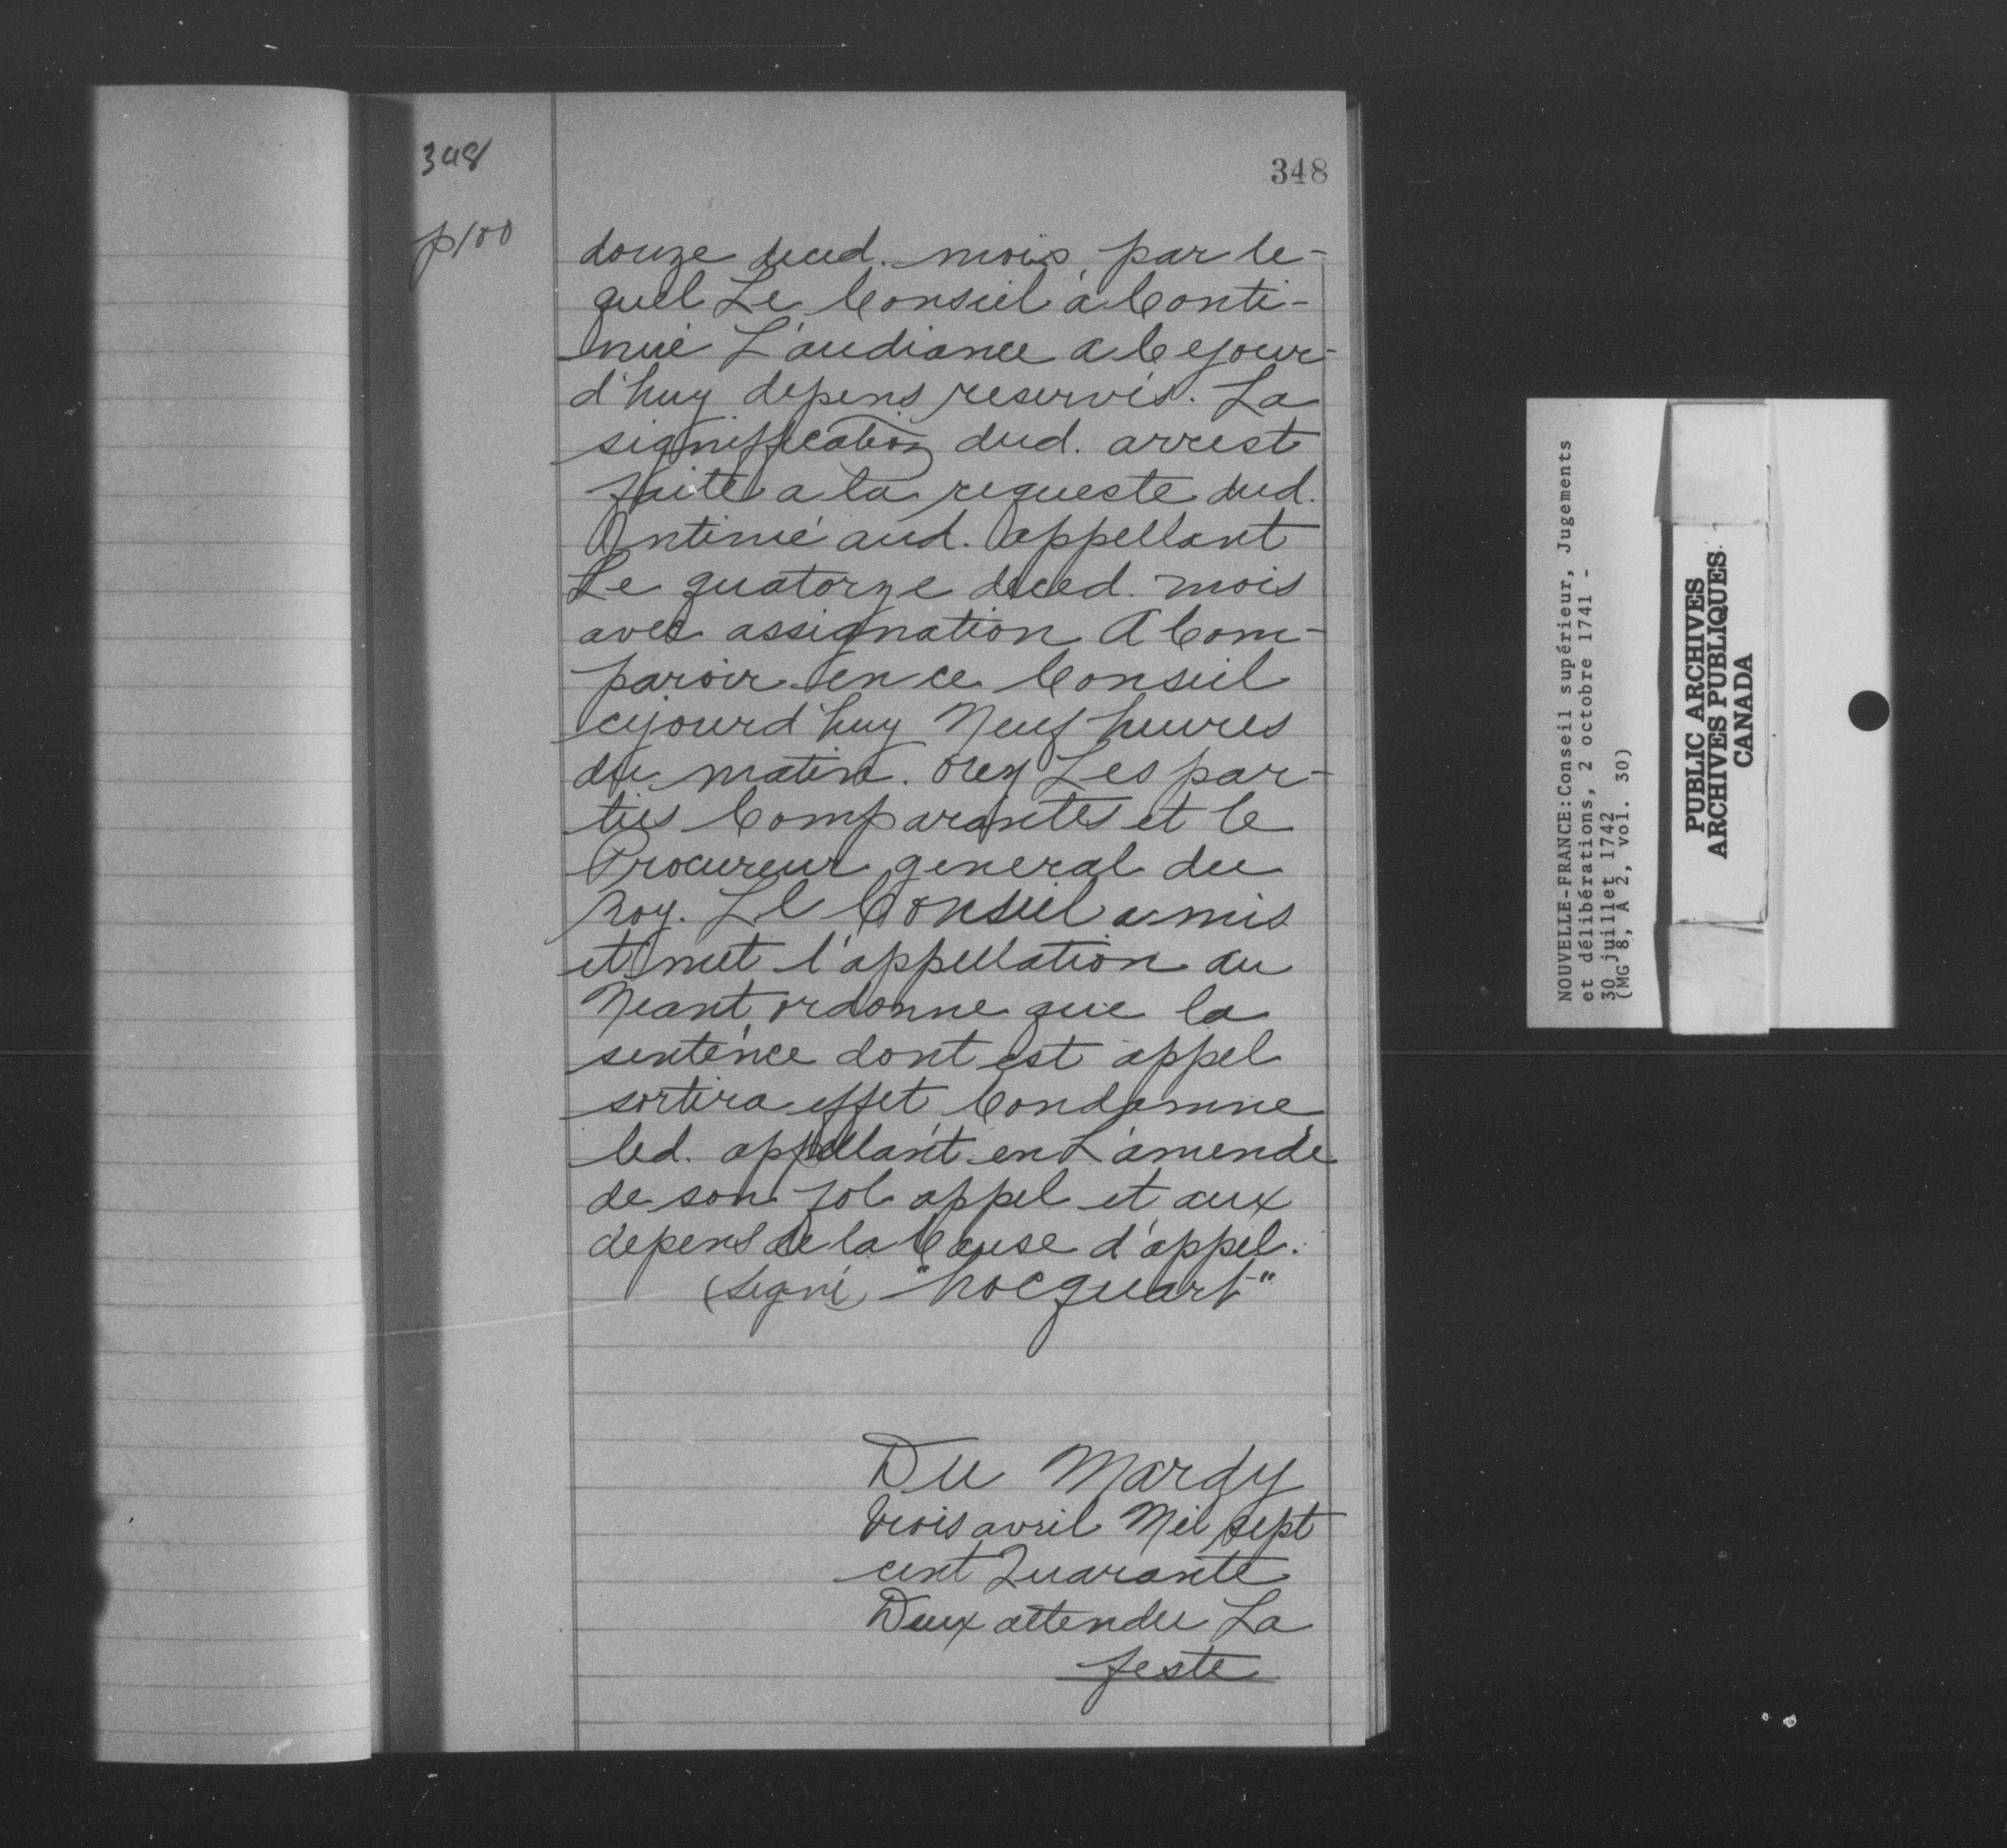 348
348
p100
douze dud. mois par le-
quel Le Conseil à Conti-
nué L'audiance a Cejour-
d'huy depens reservés. La
signiffication dud. arrest
faite a la requeste dud.
Intimé aud. appellant
Le quatorze duced. mois
avec assignation A Com-
paroir en ce Conseil
cejourd'huy Neuf heures
du matin. Ouy Les par-
ties Comparantes et le
Procureur general du
Roy. Le Conseil a mis
et met l'appellation au
Neant, ordonne que la
sentence dont est appel
sortira effet, Condamne
led. appellant en L'amende
de son fol appel et aux
depens de la Cause d'appel.
(Signé) "hocquart"
Du Mardy
trois avril Mil sept
cent Quarante
Deux attendu La
feste
NOUVELLE-FRANCE:Conseil supérieur, Jugements
et délibérations, 2 octobre 1741 -
30 juillet 1742
(MG 8, A 2, vol. 30)
PUBLIC ARCHIVES
ARCHIVES PUBLIQUES
CANADA